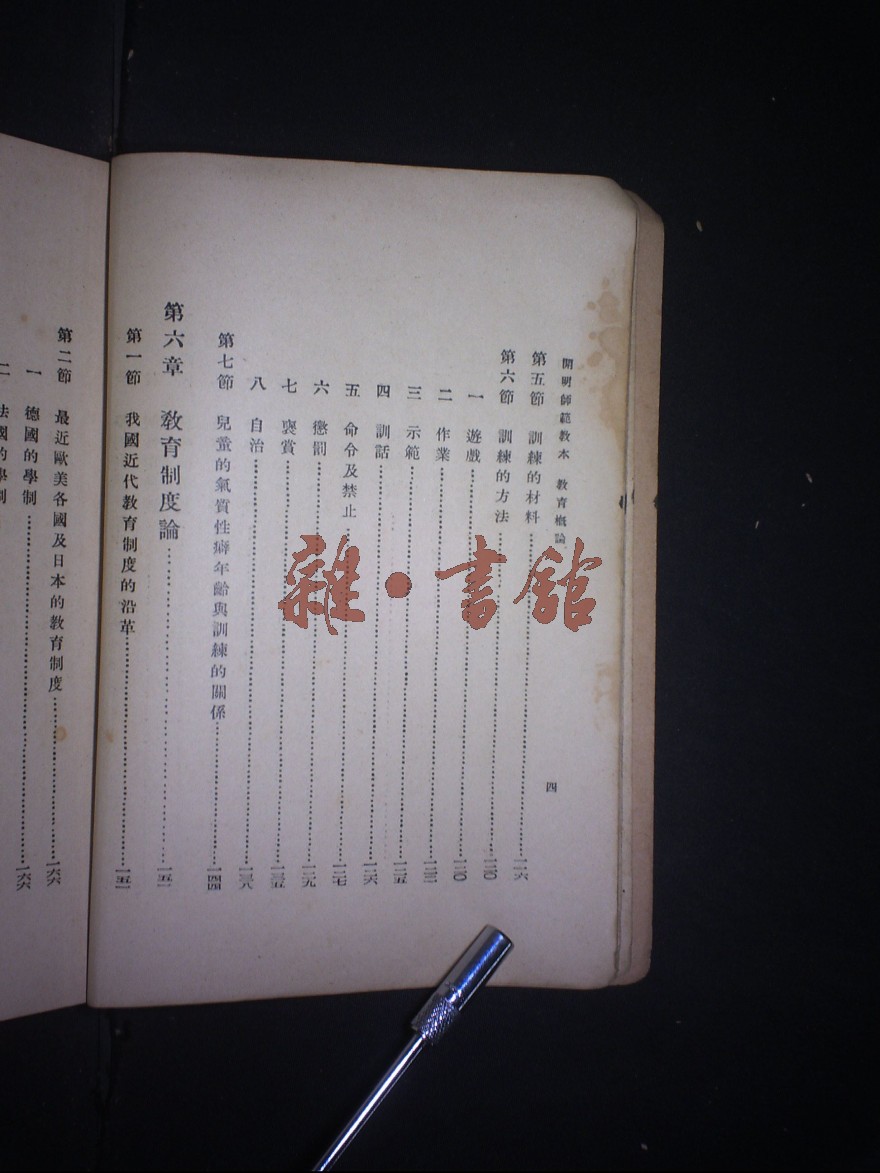 開明師範教本 教育概論
四
第五節 訓練的材料…………一一六
第六節 訓練的方法…………一二〇
一 遊戲…………一二〇
二 作業…………
三 示範…………一二五
四 訓話…………一二六
五 命令及禁止…………一二七
六 懲罰…………一二九
七 褒賞…………一三五
八 自治…………一三八
第七節 兒童的氣質性癖年齡與訓練的關係…………一四四
第六章 教育制度論…………一五一
第一節 我國近代教育制度的沿革…………一五一
第二節 最近歐美各國及日本的教育制度…………一六六
一 德國的學制…………一六六
二 法國的學制
雜·書館